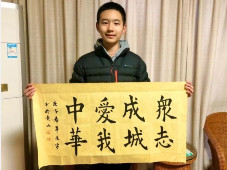 衆志
成城
愛我
中華